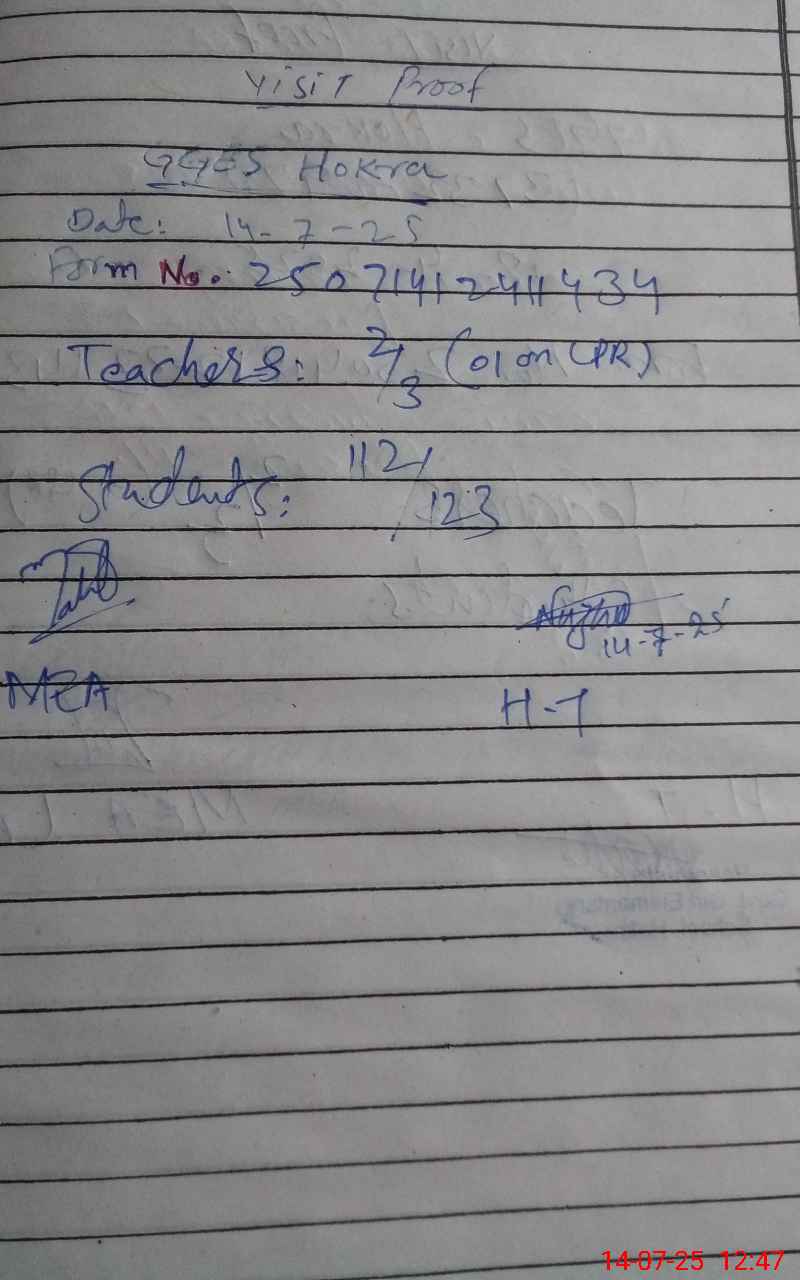 Visit Proof
GGES Hokra
Date: 14-7-25
Form No.: 25071412411434
Teachers: 2/3 (01 on CPR)
Students: 112/123
14-7-25
MEA
H-T
14-07-25 12:47